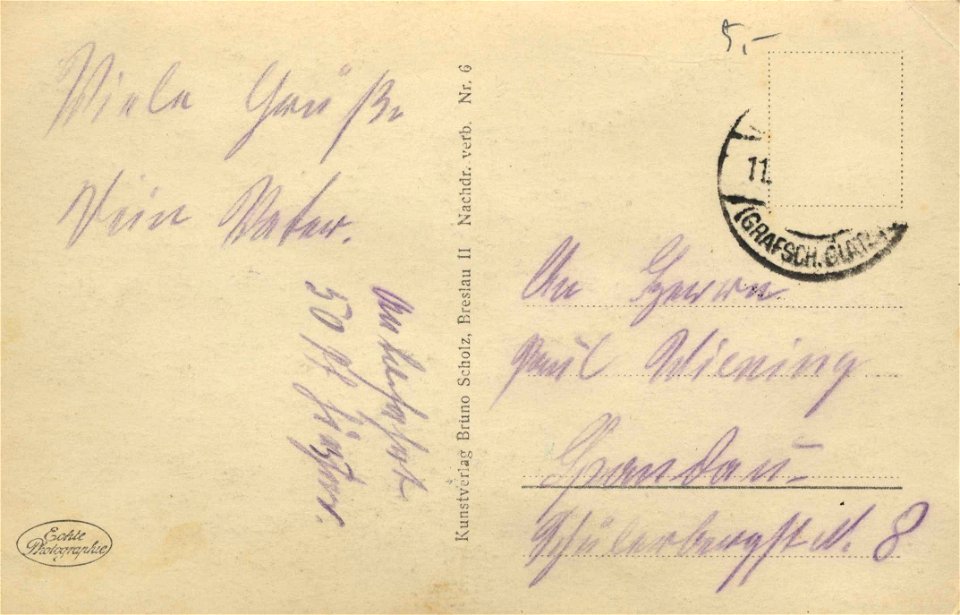 Viele Grüße
Dein Vater.
50 Pf
5,-
11.
(GRAFSCH. GLATZ)
An Herrn
Paul Wiening
Spandau
8
Kunstverlag Bruno Scholz, Breslau II Nachdr. verb. Nr. 6
Echte
Photographie